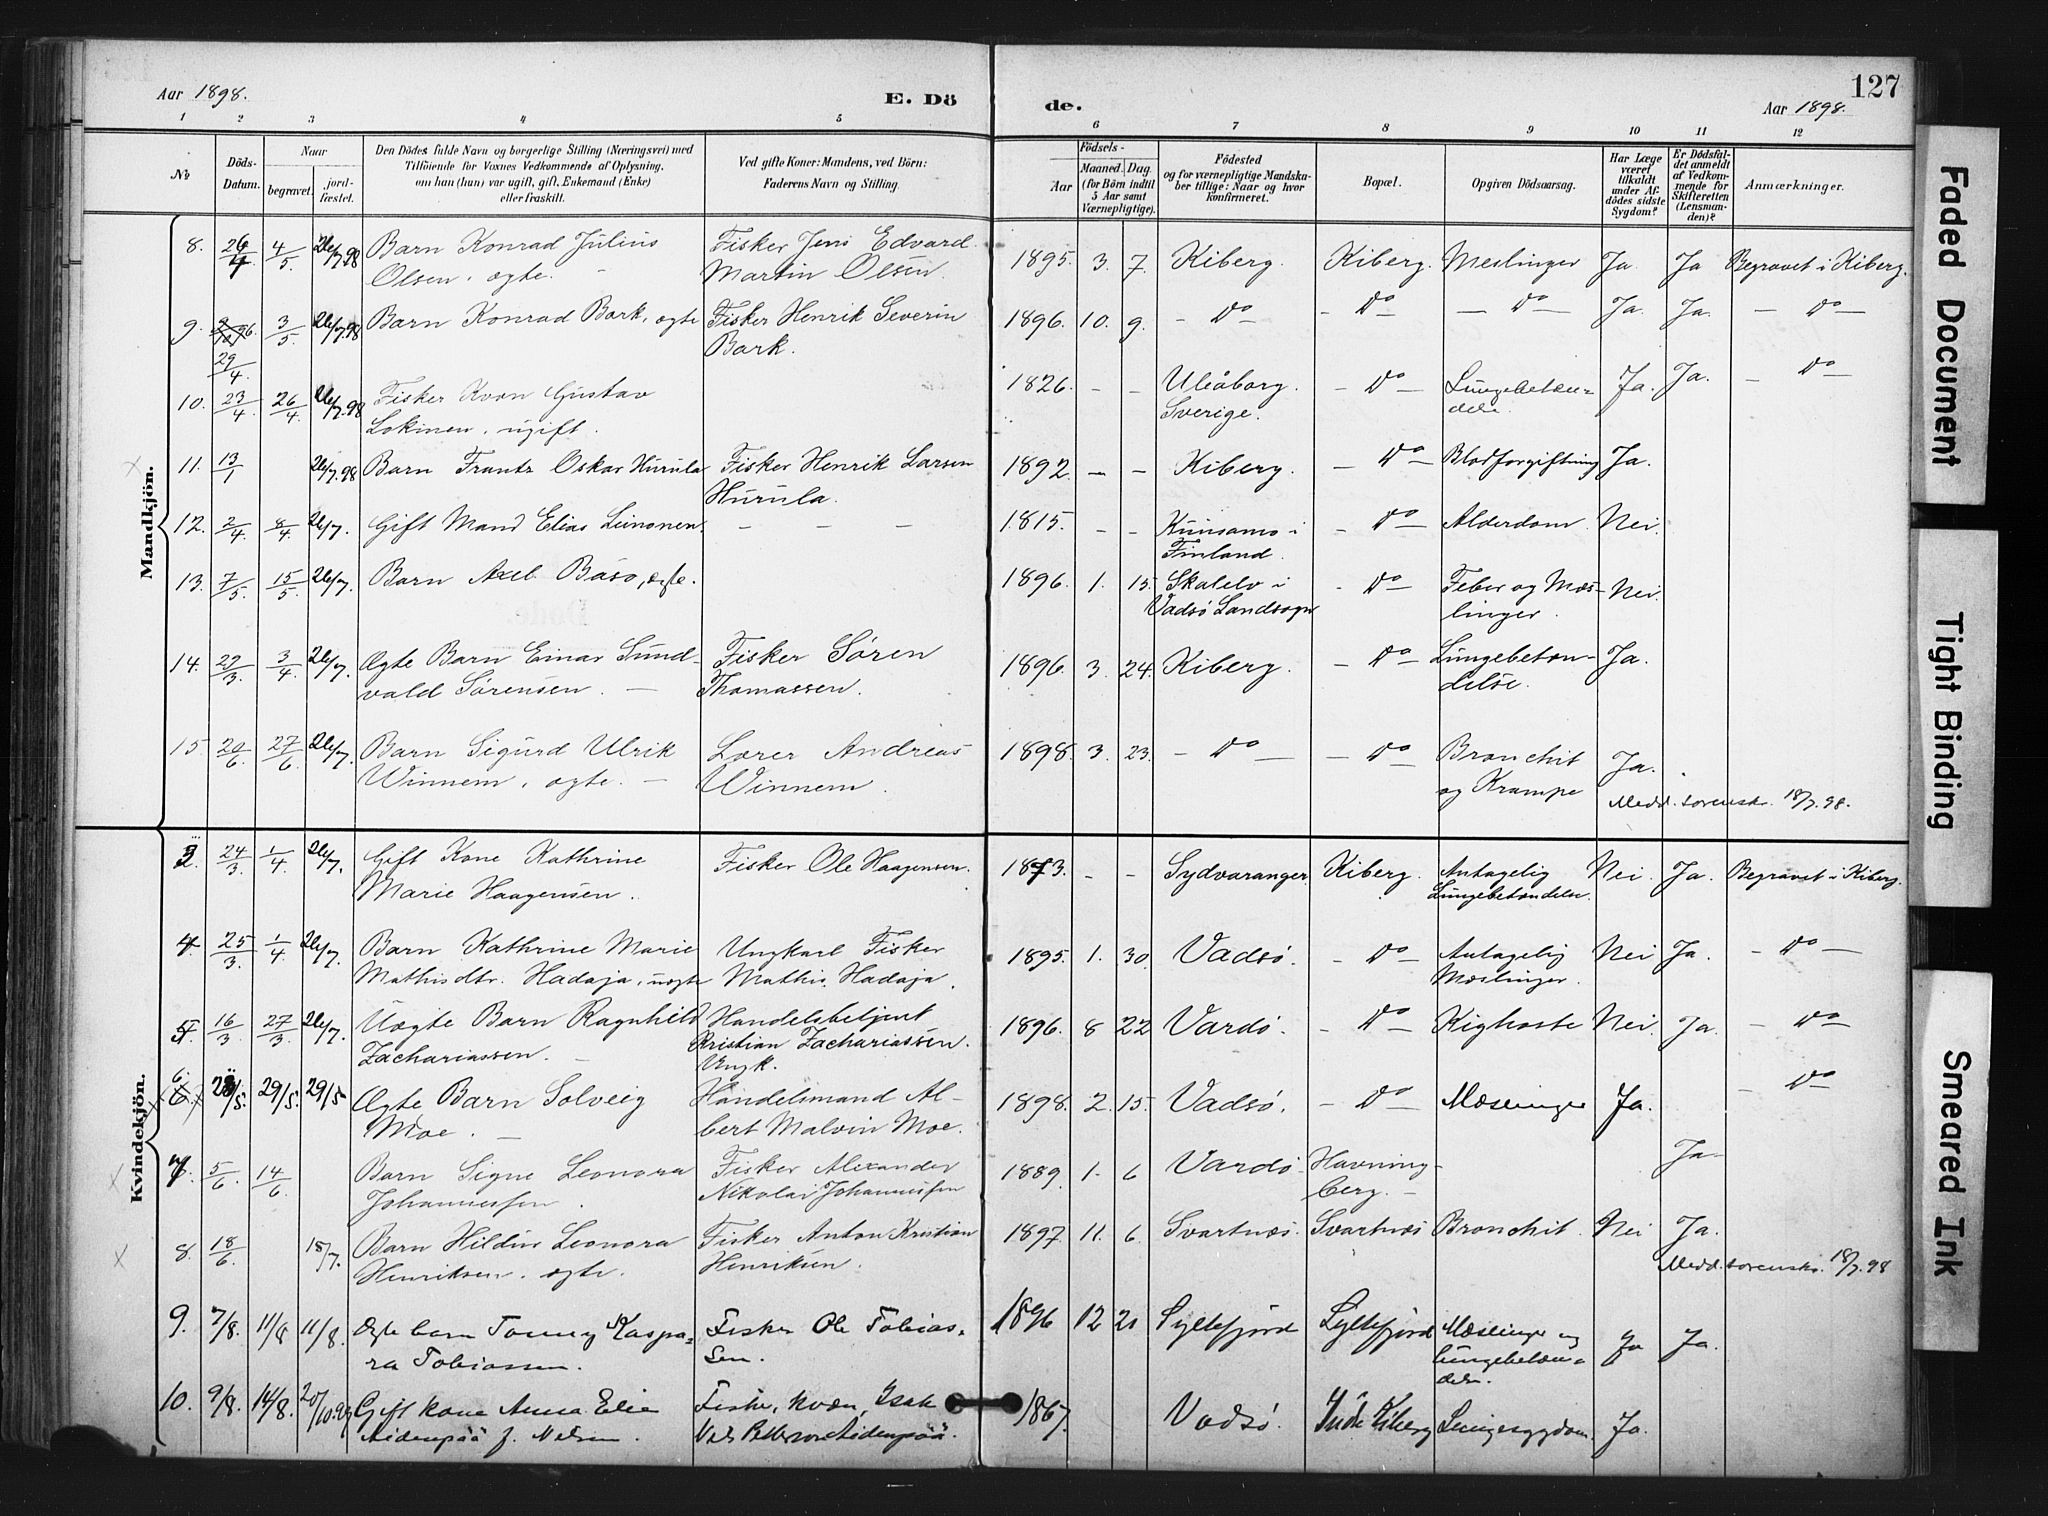 Aar 1898.
E. Dö
de.
Aar 1898.
127
1 2 3 4 5 6 7 8 9 10 11 12
No
Döds-
Datum.
Naar
begravet.
jord-
fæstet.
Den Dödes fulde Navn og borgerlige Stilling (Næringsvei) med
Tilföiende for Voxnes Vedkommende af Oplysning,
om han (hun) var ugift, gift, Enkemand (Enke)
eller fraskilt.
Ved gifte Koner: Mandens, ved Börn:
Faderens Navn og Stilling.
Födsels-
Aar
Maaned. Dag.
(for Börn indtil
5 Aar samt
Værnepligtige).
Födested
og for værnepligtige Mandska-
ber tillige: Naar og hvor
konfirmeret.
Bopæl.
Opgiven Dödsaarsag.
Har Læge
været
tilkaldt
under Af-
dödes sidste
Sygdom?
Er Dödsfal-
det anmeldt
af Vedkom-
mende for
Skifteretten
(Lensman-
den)?
Anmærkninger.
Mandkjön.
8. 26/4 4/5 26/7.98 Barn Konrad Julius Fisker Jens Edvard 1895. 3. 7. Kiberg. Kiberg. Meslinger Ja. Ja Begravet i Kiberg.
Olsen, ægte. Martin Olsen.
9. 3/5 26/7.98 Barn Konrad Bark, ægte Fisker Henrik Severin 1896. 10. 9. - Do - Do - Do - Ja. Ja. - Do -
29/4 Bark.
10. 23/4 26/4 26/7.98 Fisker Kvæn Gustav 1826. - - Uleåborg. - Do - Lungebetæn- Ja. Ja. - Do -
Lokinen, ugift. Sverige. delse
11. 13/1 26/7.98 Barn Frantz Oskar Hurula Fisker Henrik Larsen 1892. - - Kiberg. - Do - Blodforgiftning Ja.
Hurula.
12. 2/4 8/4 26/7. Gift Mand Elias Leinonen. - - - 1815. - - Kuusamo i - Do - Alderdom. Nei.
Finland.
13. 7/5 15/5 26/7. Barn Axel Båso, ægte. 1896. 1. 15. Skalelv i - Do - Feber og Mæs- Nei.
Vadsö Landsogn linger.
14. 29/3 3/4 26/7. Ægte Barn Einar Sund- Fisker Sören 1896. 3. 24. Kiberg. - Do - Lungebetæn- Ja.
vald Sörensen. - Thomassen. delse.
15 20/6 27/6 26/7. Barn Sigurd Ulrik Lærer Andreas 1898. 3. 23. - Do - - Do - Bronchit Ja.
Winnem, ægte. - Winnem. og Krampe Medd. sorenskr. 18/7.98.
Kvindekjön.
3. 24/3 1/4 26/7. Gift Kone Kathrine Fisker Ole Haagensen. 1873. - - Sydvaranger. Kiberg. Antagelig Nei. Ja. Begravet i Kiberg.
Marie Haagensen. Lungebetændelse.
4. 25/3 1/4 26/7. Barn Kathrine Marie Ungkarl Fisker 1895. 1. 30. Vadsö. - Do - Antagelig Nei Ja. - Do -
Mathisdtr. Hadaja, uægte Mathis Hadaja. Mæslinger.
5. 16/3 27/3 26/7. Uægte Barn Ragnhild Handelsbetjent 1896. 8 22 Vardö. - Do - Kighoste Nei. Ja. - Do -
Zachariassen. - Kristian Zachariassen.
Ungk.
6. 28/5. 29/5. 29/5 Ægte Barn Solveig Handelsmand Al- 1898. 2. 15. Vadsö. - Do - Mæslinger Ja. - Do -
Moe. - bert Malvin Moe.
7. 5/6 14/6 Barn Signe Leonora Fisker Alexander 1889. 1. 6 Vardö. Havning- Ja.
Johannessen. Nikolai Johannessen berg. -
8. 18/6 18/7. Barn Hildur Leonora Fisker Anton Kristian 1897. 11. 6. Svartnæs. Svartnæs Bronchit. Nei Ja.
Henriksen. ægte. Henriksen. Medd. sorenskr. 18/7.98
9. 7/8. 11/8 11/8. Ægte barn Tomny Kaspa- Fisker Ole Tobias- 1896 12 21 Syltefjord Syltefjord Mæslinger og Ja Ja.
ra Tobiassen. sen. lungebetæn-
delse.
10. 9/8. 14/8. 20/10.98 Gift kone Anna Elie Fisker, kvæn, Isak 1867. Vadsö. Indre Kiberg Lungesygdom. Ja.
Aidenpää f. Nelsen. Aidenpää.
Faded Document
Tight Binding
Smeared Ink